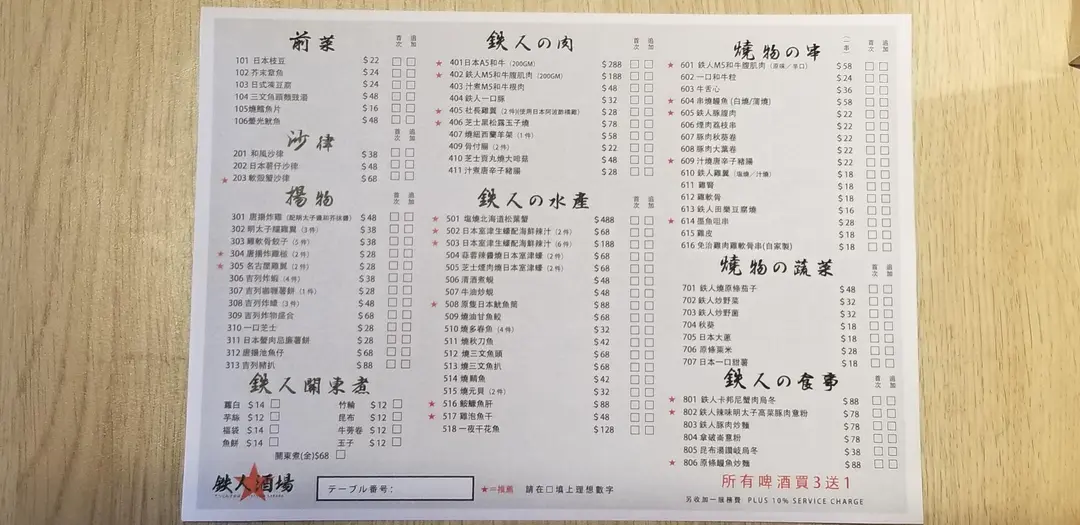 前菜
首次 追加
101 日本枝豆 $22
102 芥末章魚 $24
103 日式凍豆腐 $24
104 三文魚頭麵豉湯 $48
105燒鱈魚片 $16
106螢光魷魚 $48
沙律
首次 追加
201 和風沙律 $38
202 日本薯仔沙律 $48
★ 203 軟殼蟹沙律 $68
揚物
首次 追加
301 唐揚炸雞 (配明太子醬和芥辣醬) $48
302 明太子糯雞翼 (3件) $38
303 雞軟骨餃子 (5件) $38
★ 304 唐揚炸雞槌 (2件) $28
★ 305 名古屋雞翼 (2件) $28
306 吉列炸蝦 (4件) $38
307 吉列咖喱薯餅 (1件) $28
308 吉列炸蠔 (3件) $48
309 吉列炸物盛合 $68
310 一口芝士 $28
311 日本蟹肉忌廉薯餅 $28
312 唐揚池魚仔 $68
313 吉列豬扒 $88
鉄人關東煮
蘿白 $14
竹輪 $12
芋絲 $12
昆布 $12
福袋 $14
牛蒡卷 $12
魚餅 $14
玉子 $12
關東煮(金)$68
鉄人酒場
鉄人の肉
首次 追加
★ 401日本A5和牛 (200GM) $288
★ 402 鉄人M5和牛腹肌肉 (200GM) $188
403 汁煮M5和牛根肉 $48
404 鉄人一口豚 $32
★ 405 社長雞翼 (2件)(使用日本阿波酢橘雞) $28
★ 406 芝士黑松露玉子燒 $78
407 燒紐西蘭羊架 (1件) $58
409 骨付腸 (2件) $22
410 芝士貢丸燒大啡菇 $48
411 汁煮唐辛子豬腸 $28
鉄人の水產
首次 追加
★ 501 塩燒北海道松葉蟹 $488
★ 502 日本室津生蠔配海鮮辣汁 (2件) $68
★ 503 日本室津生蠔配海鮮辣汁 (6件) $188
504 蒜蓉辣醬燒日本室津蠔 (2件) $68
505 芝士煙肉燒日本室津蠔 (2件) $68
506 清酒煮蜆 $48
507 牛油炒蜆 $48
★ 508 原隻日本魷魚筒 $88
509 燒油甘魚鮫 $68
510 燒多春魚 (4件) $32
511 燒秋刀魚 $42
512 燒三文魚頭 $68
513 燒三文魚扒 $68
514 燒鯖魚 $42
515 燒元貝 (2件) $32
★ 516 鮟鱇魚肝 $88
★ 517 雞泡魚干 $48
518 一夜干花魚 $128
テーブル番号：
★=推薦 請在□填上理想數字
燒物の串
(一串) 首次 追加
★ 601 鉄人M5和牛腹肌肉 (原味／辛口) $58
602 一口和牛粒 $24
603 牛舌心 $36
★ 604 串燒鰻魚 (白燒/蒲燒) $58
★ 605 鉄人豚腹肉 $22
606 煙肉荔枝串 $22
607 豚肉秋葵卷 $22
608 豚肉大葉卷 $22
★ 609 汁燒唐辛子豬腸 $22
610 鉄人雞翼 (塩燒／汁燒) $18
611 雞腎 $18
612 雞軟骨 $18
613 鉄人田樂豆腐燒 $16
★ 614 墨魚咀串 $28
615 雞皮 $18
616 免治雞肉雞軟骨串(自家製) $18
燒物の蔬菜
首次 追加
701 鉄人燒原條茄子 $48
702 鉄人炒野菜 $32
703 鉄人炒野菌 $32
704 秋葵 $18
705 日本大蔥 $18
706 原條粟米 $28
707 日本一口甜薯 $18
鉄人の食事
首次 追加
★ 801 鉄人卡邦尼蟹肉烏冬 $88
★ 802 鉄人辣味明太子高菜豚肉意粉 $78
803 鉄人豚肉炒麵 $78
804 拿破崙意粉 $78
805 昆布湯讚岐烏冬 $38
★ 806 原條鰻魚炒麵 $88
所有啤酒買3送1
另收加一服務費 PLUS 10% SERVICE CHARGE